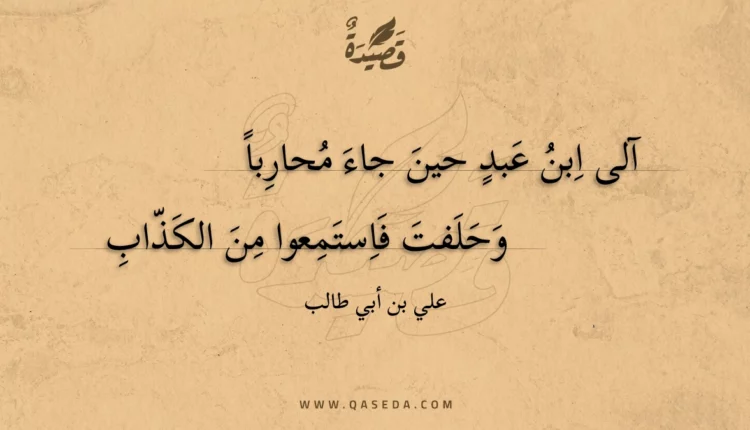 قَصِيْدَةٌ
آلى اِبنُ عَبدٍ حينَ جاءَ مُحارِباً
وَحَلَفتَ فَاِستَمِعوا مِنَ الكَذّابِ
علي بن أبي طالب
WWW.QASEDA.COM